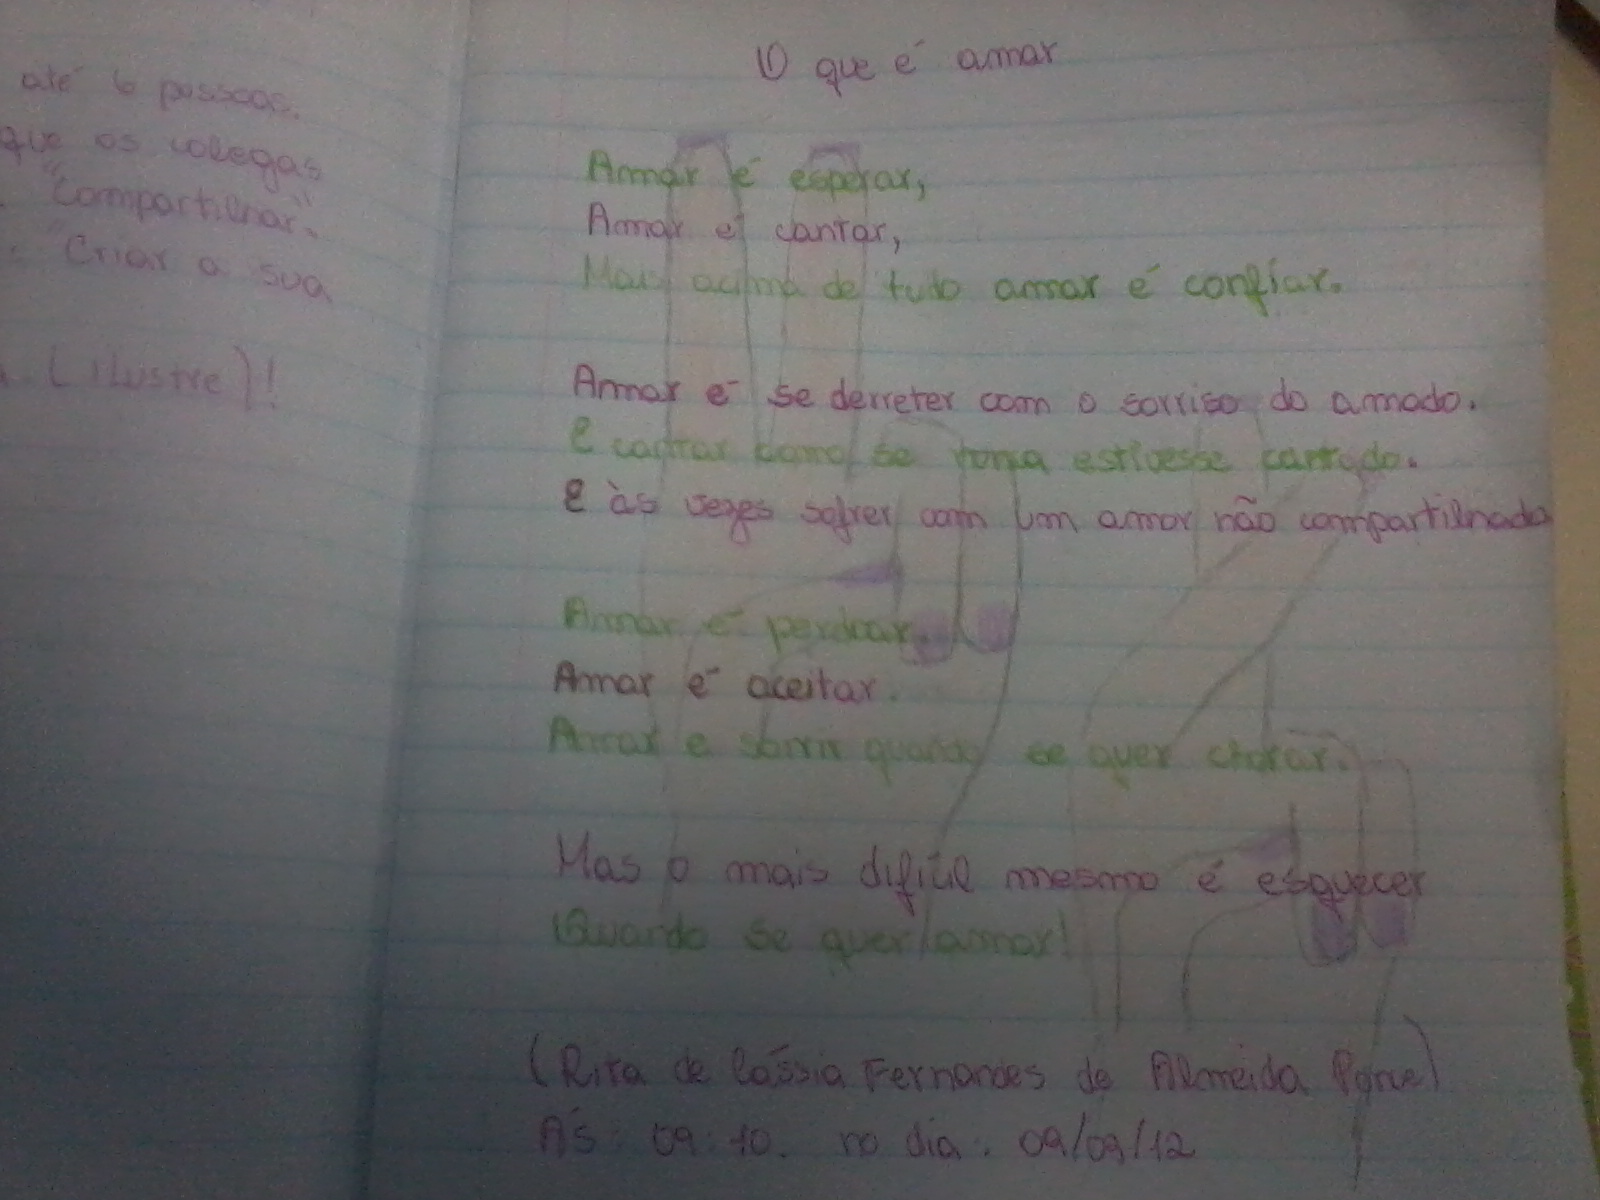 até 6 pessoas.
que os colegas
"compartilhar".
Criar a sua
(Ilustre)!
O que é amar
Amar é esperar,
Amar é cantar,
Mais acima de tudo amar é confiar.
Amar é se derreter com o sorriso do amado.
E cantar como se nunca estivesse cantado.
E às vezes sofrer com um amor não compartilhado
Amar é perdoar.
Amar é aceitar.
Amar e sorrir quando se quer chorar.
Mas o mais difícil mesmo é esquecer
Quando se quer amar!
(Rita de Cássia Fernandes de Almeida
Às: 09:10. no dia: 09/09/12